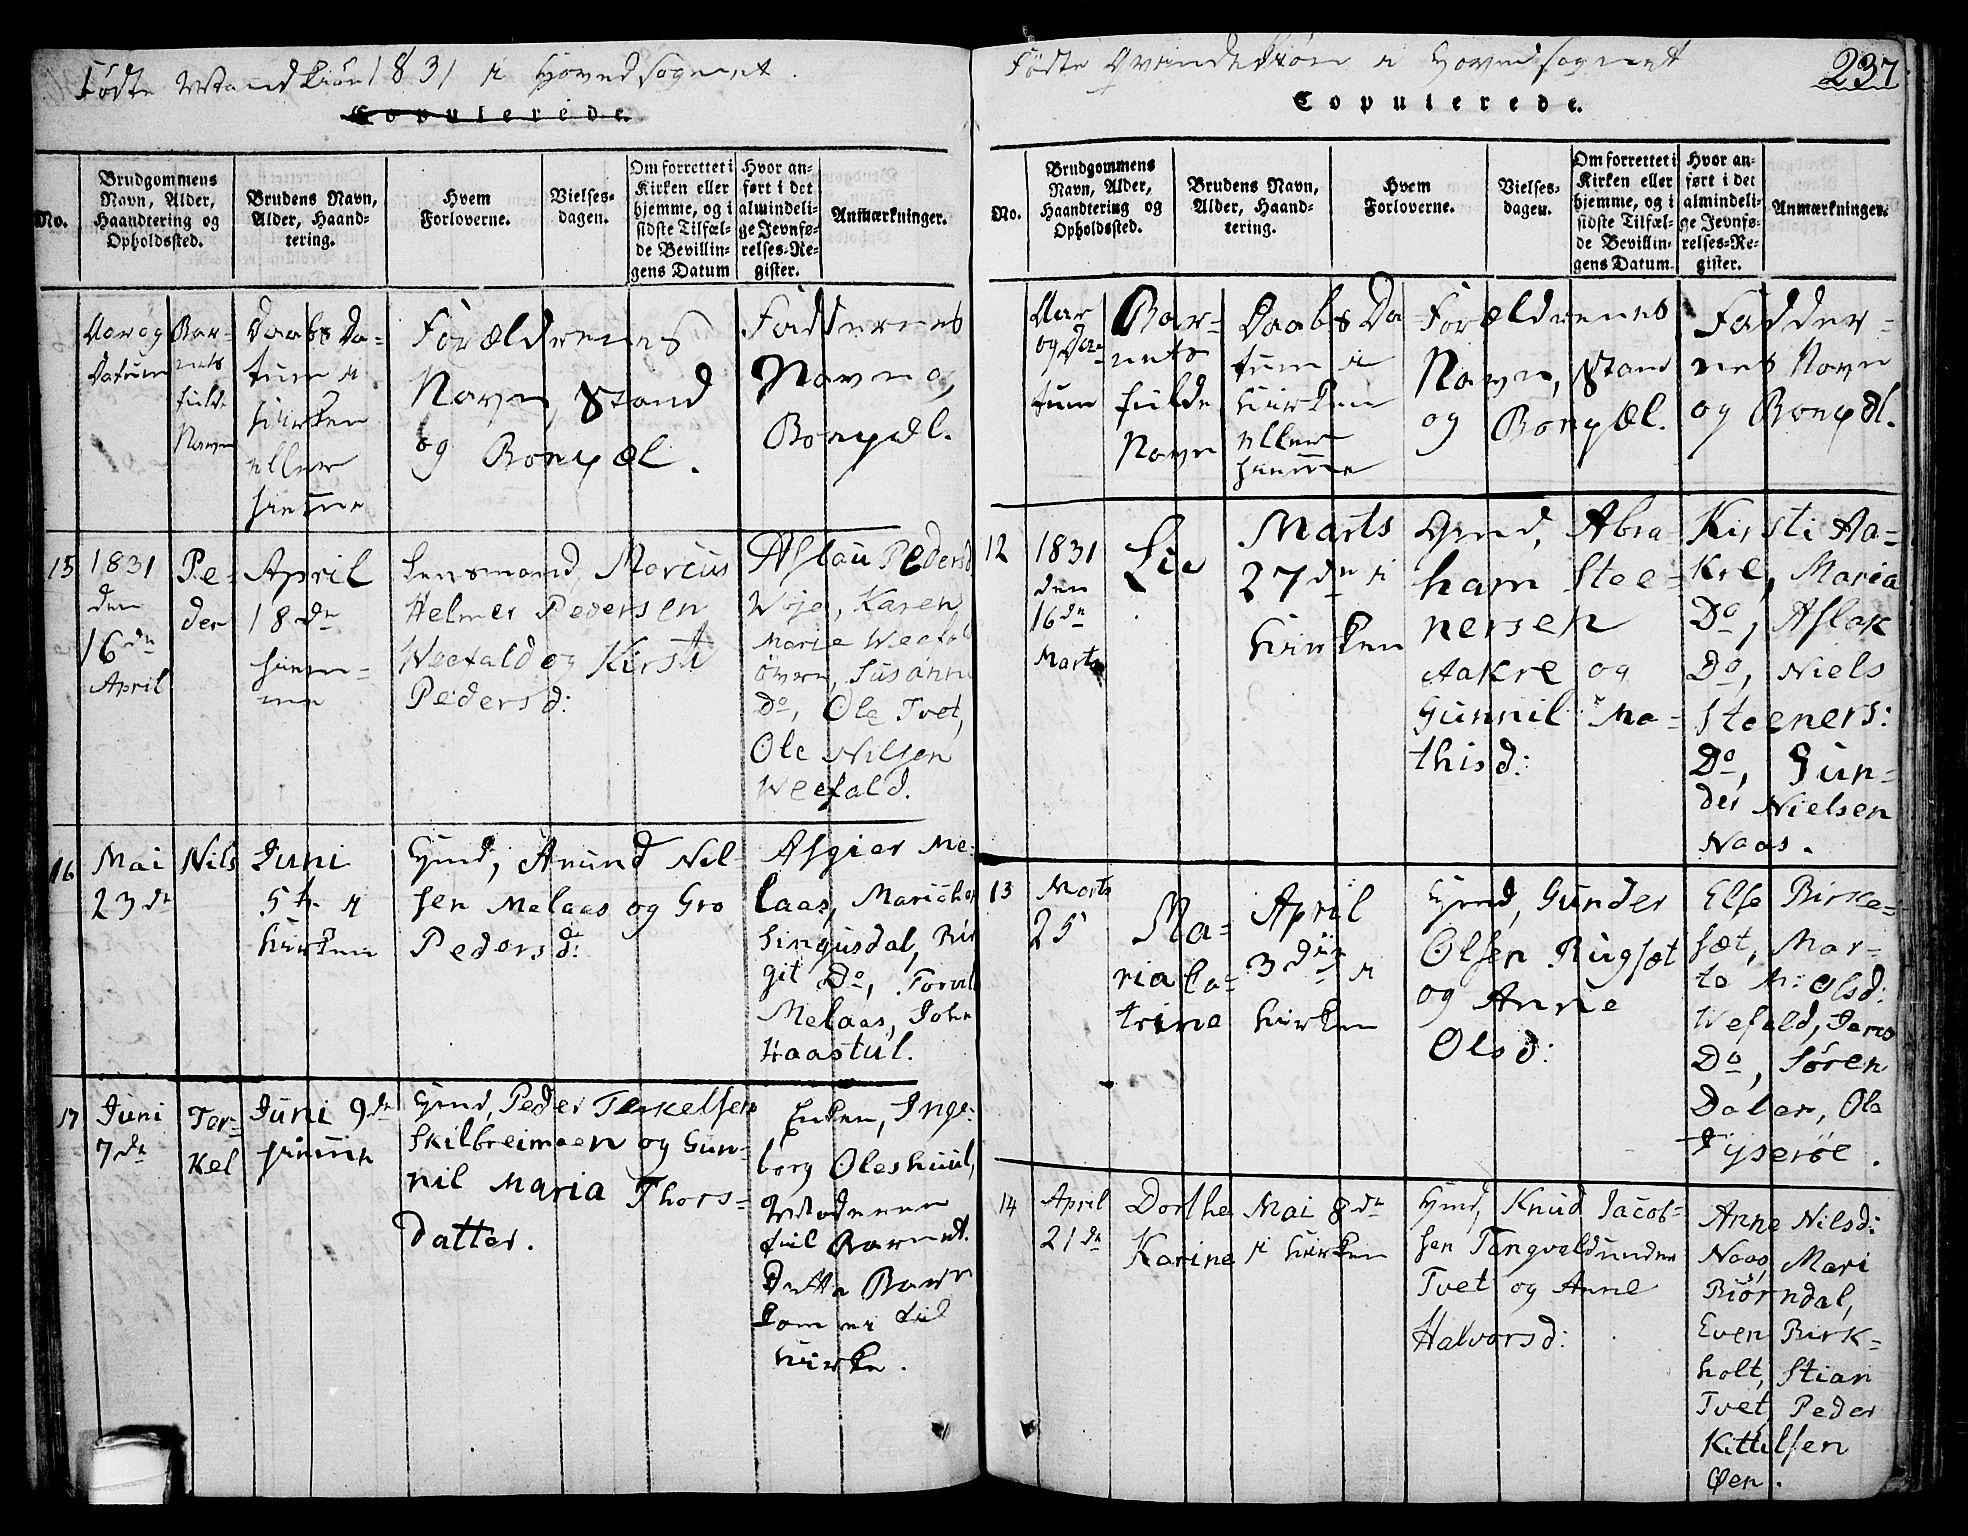 Fødte Mandkiøn 1831 i Hovedsognet.
Copulerede.
No.
Brudgommens
Navn, Alder,
Haandtering og
Opholdssted.
Brudens Navn,
Alder, Haand-
tering.
Hvem
Forloverne.
Vielses-
dagen.
Om forrettet i
Kirken eller
hjemme, og i
sidste Tilfæl-
de Bevillin-
gens Datum
Hvor an-
ført i det
almindeli-
ge Jevnfø-
relses-Re-
gister.
Anmærkninger.
Aar og
Datum
Bar-
nets
fulde
Navn
Daabs Da-
tum i
Kirken
eller
hiemme
Forældrenes
Navn, Stand
og Bopæl.
Faddernes
Navn og
Bopæl.
15
1831
den
16de
April
Pe-
der
April
18de
hiem-
me
Lensmand Marcus
Helmer Pedersen
Weefald og Kirsti
Pedersd:
Aslau Pedersd
Woje, Karen
Marie Weefal
øvre, Susanne
Do, Ole Tvet,
Ole Nilsen
Weefald.
16
Mai
23de
Nils
Juni
5te i
Kirken
Gmd, Anund Nil-
sen Melaas og Gro
Pedersd:
Asgier Me-
laas, Marichen
Singusdal, Bir
git Do,
Melaas, John
Haastul.
17
Juni
7de
Ter-
kel
Juni 9de
hiemme
Gmd, Peder Terkelsen
Skilbreimoen og Gun-
nil Maria Thors-
datter.
Enken, Inge-
borg Oleshuul,
Moderen
til Barnet.
Dette Barn
kom ei til
Kirke.
Fødte Qvindekiøn i Hovedsognet
237
Copulerede.
No.
Brudgommens
Navn, Alder,
Haandtering og
Opholdssted.
Brudens Navn,
Alder, Haand-
tering.
Hvem
Forloverne.
Vielses-
dagen.
Om forrettet i
Kirken eller
hjemme, og i
sidste Tilfæl-
de Bevillin-
gens Datum
Hvor an-
ført i det
almindeli-
ge Jevnfø-
relses-Re-
gister.
Anmærkninger.
Aar
og Da-
tum
Bar-
nets
fulde
Navn
Daabs Da-
tum i
Kirken
eller
hiemme
Forældrenes
Navn, Stand
og Bopæl.
Fadder-
nes Navn
og Bopæl.
12
1831
den
16de
Marts
Lie
Marts
27de i
Kirken
Gmd, Abra-
ham Stee-
nersen
Aakre og
Gunnil Ma-
thisd:
Kirsti Aa-
kre, Maria
Do, Aslak
Do, Niels
Steeners:
Do, Gun-
der Nielsen
Naas.
13
Marts
25
Ma-
ria Ca-
trine
April
3die i
Kirken
Gmd, Gunder
Olsen Rugsæt
og Anne
Olsd:
Else Birke-
sæt, Mar-
ta M: Olsd:
Wefald, Jens
Do, Søren
Daler, Ole
Fyserøe.
14
April
21de
Dorthe
Karine
Mai 8de
i Kirken
Gmd, Knud Jacob-
sen Tangvald under
Tvet og Anne
Halvorsd:
Anne Nilsd:
Naas, Mari
Biørndal,
Even Birk-
holt, Stian
Tvet, Peder
Kittilsen
Øen.